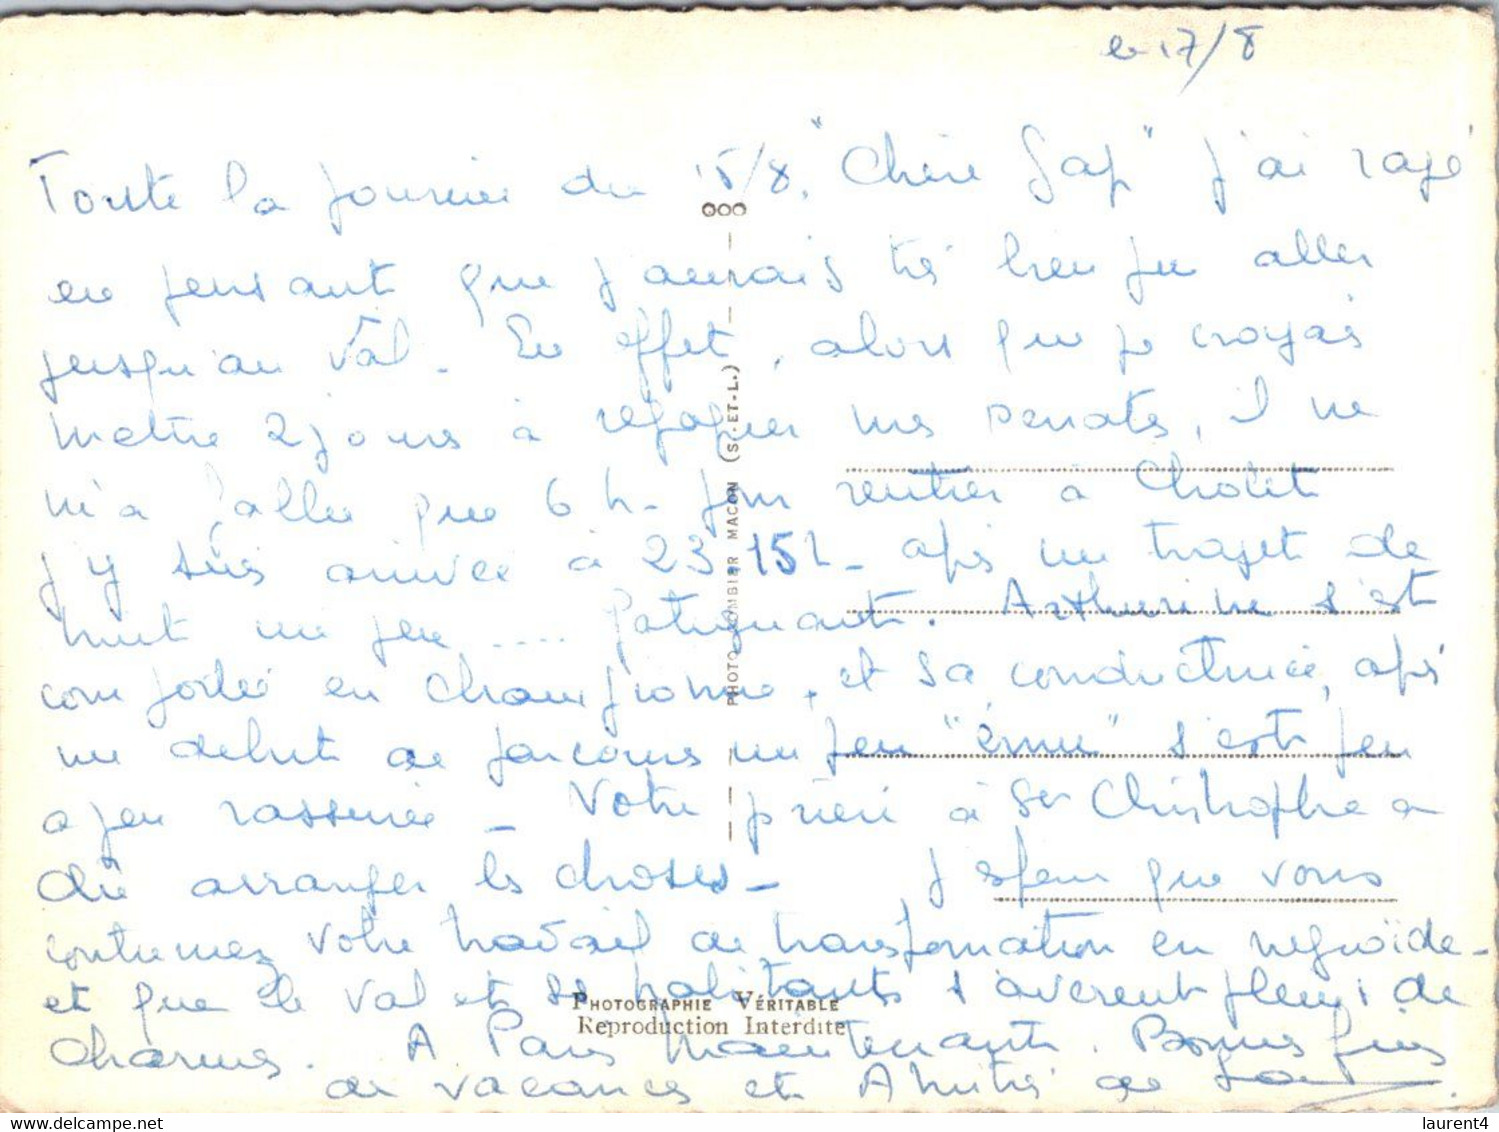 le 17/8
Toute la journée du 15/8, "Chère Gaf" j'ai ragé
en pensant que j'aurais très bien pu aller
jusqu'au Val. En effet, alors que je croyais
mettre 2 jours à regagner mes penates, il ne
m'a fallu que 6 h. pour rentrer à Cholet
j'y suis arrivée à 23 15 h. après un trajet de
nuit un peu .... fatiguant. Arthurine s'est
comportée en championne, et sa conductrice, après
un debut de parcours un peu "ému" s'est peu
a peu rassurée _ Votre prière à St Christophe a
dû arranger les choses _ J'espère que vous
continuez votre travail de transformation en negroïde _
et que le Val et ses habitants s'averent pleins de
charmes. A Paris maintenant. Bonnes fins
de vacances et Amitiés de
PHOTO COMBIER MACON (S.-ET-L.)
PHOTOGRAPHIE VÉRITABLE
Reproduction Interdite
delcampe.net
laurent4